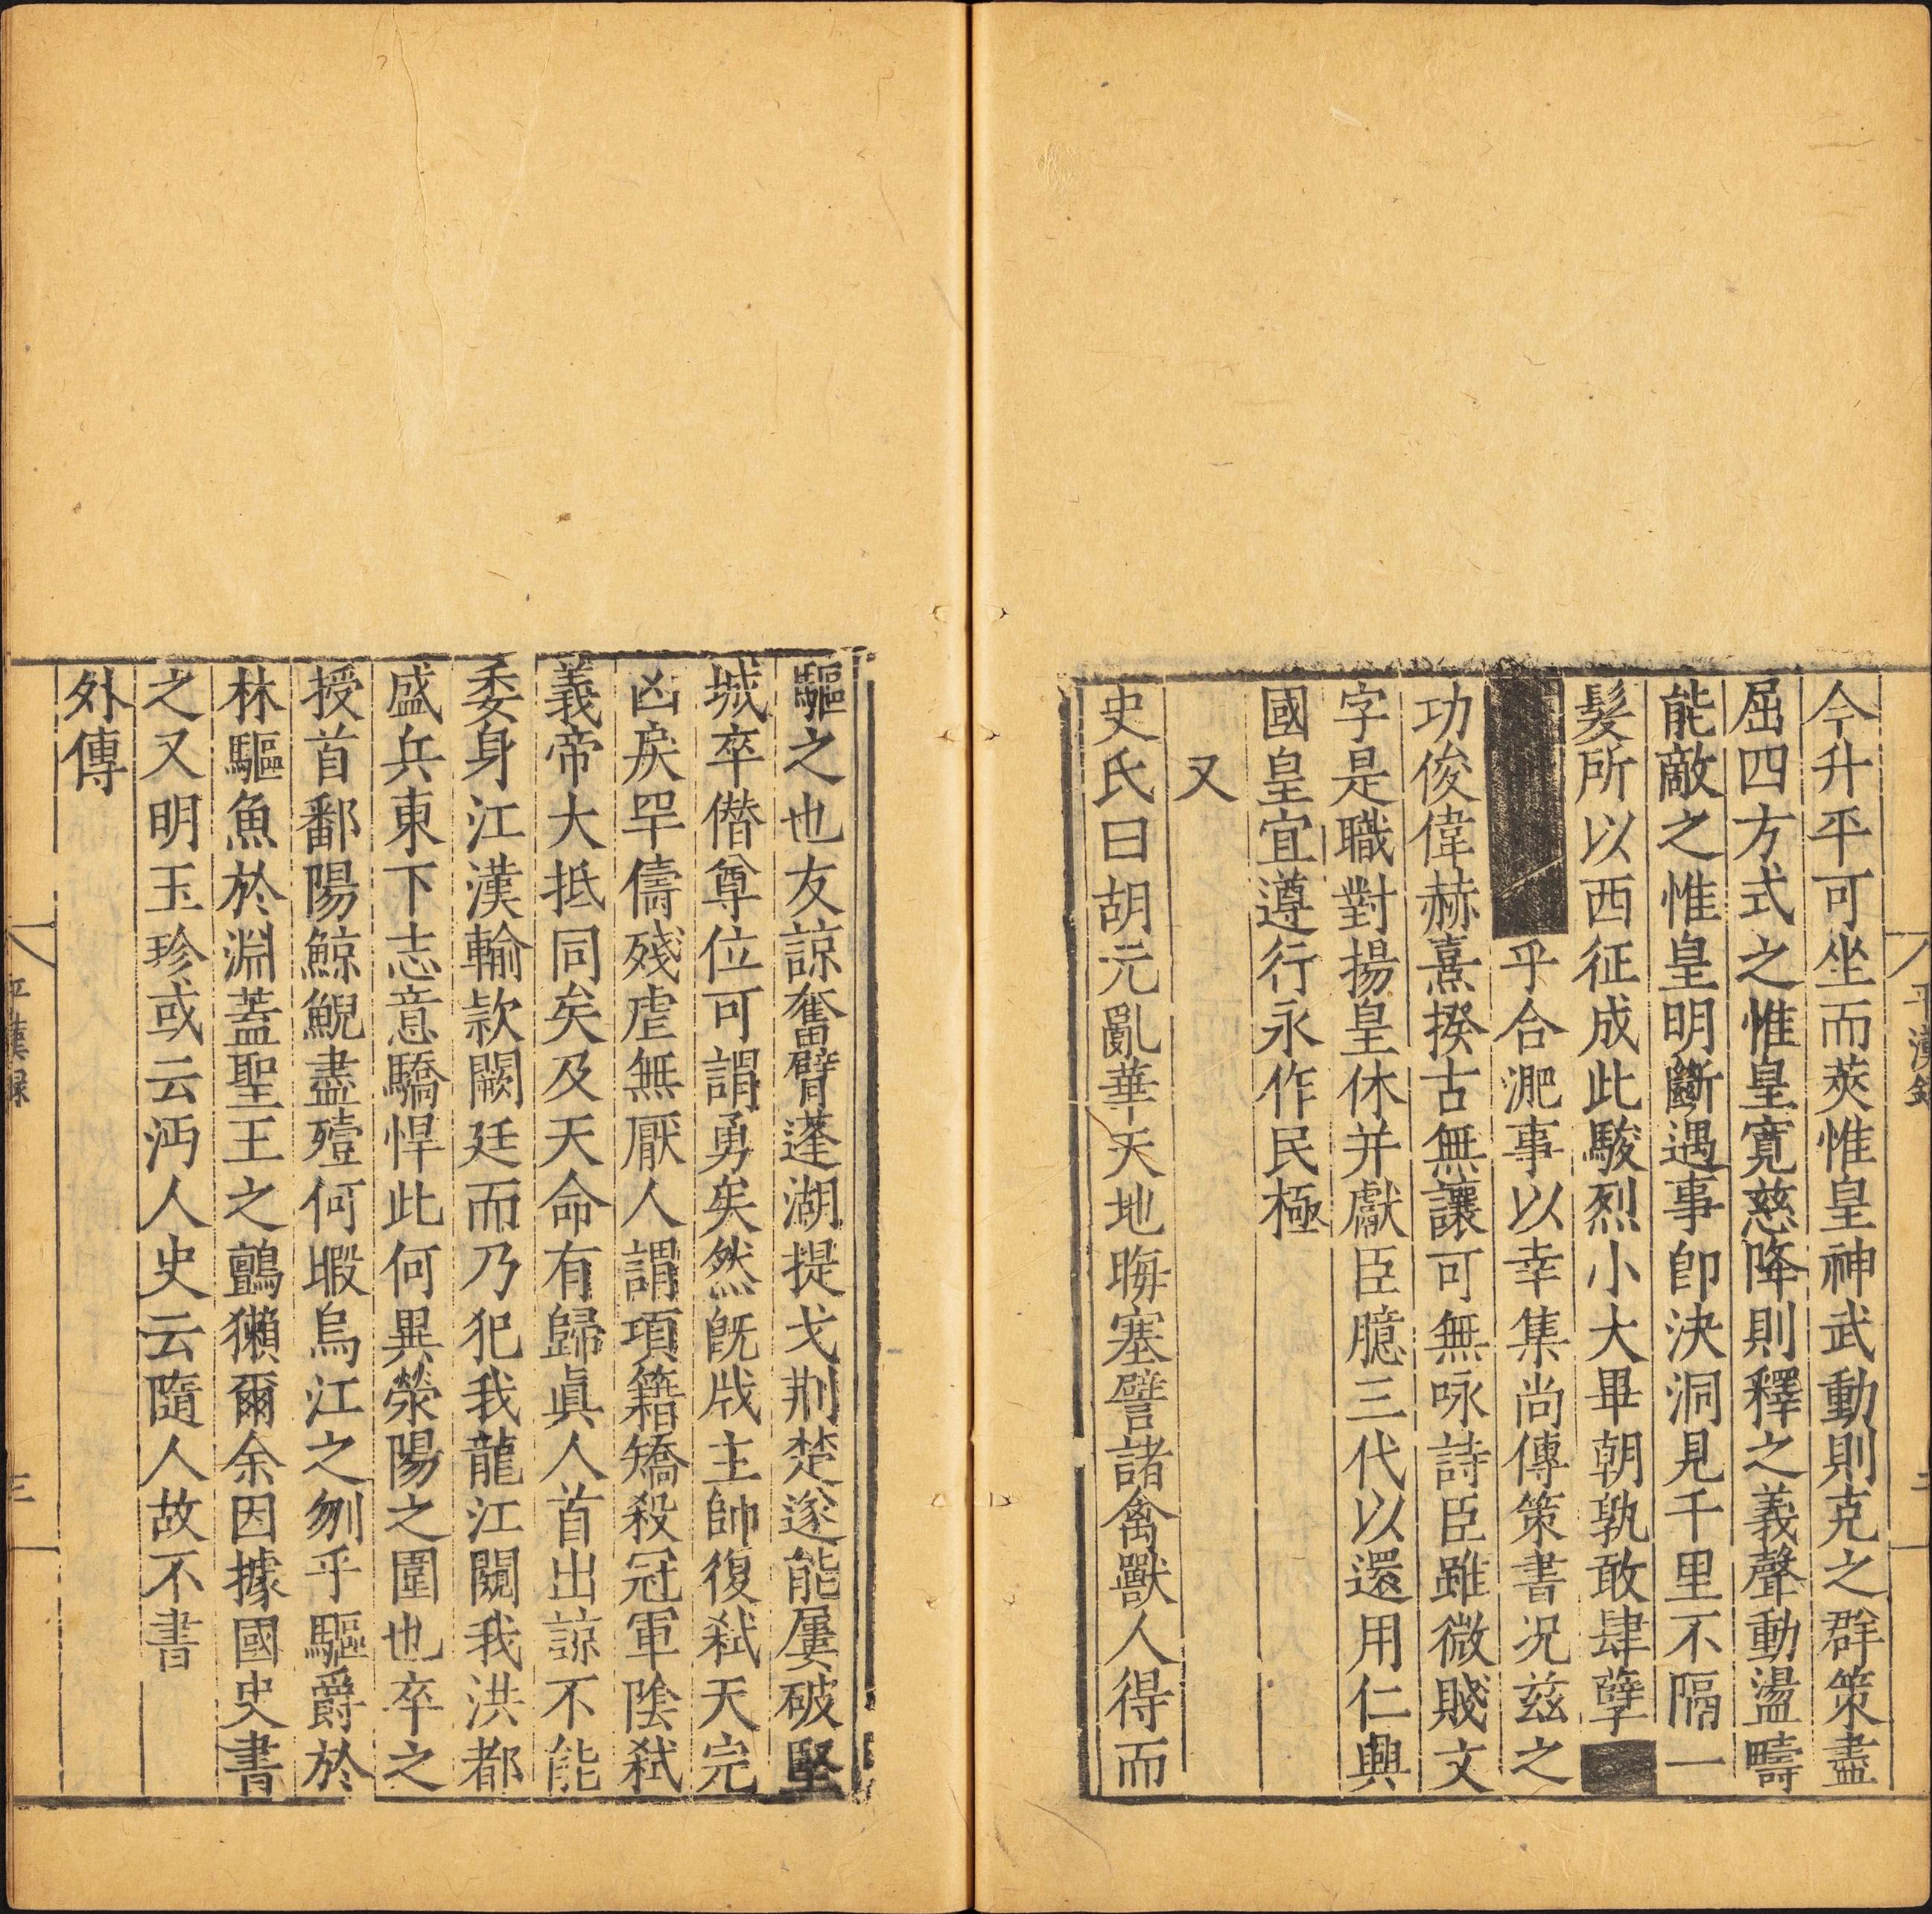 平漢錄
二
今升平可坐而莢惟皇神武動則克之群策盡
屈四方式之惟皇寬慈降則釋之義聲動盪疇
能敵之惟皇明斷遇事卽決洞見千里不隔一
髮所以西征成此駿烈小大畢朝孰敢肆孽
乎合淝事以幸集尚傳策書况兹之
功俊偉赫熹揆古無讓可無咏詩臣雖微賤文
字是職對揚皇休并獻臣臆三代以還用仁興
國皇宜遵行永作民極
又
史氏曰胡元亂華天地晦塞譬諸禽獸人得而
驅之也友諒奮臂蓬湖提戈荆楚遂能屢破堅
城卒僭尊位可謂勇矣然旣戕主帥復弑天完
凶戾罕儔殘虐無厭人謂項籍矯殺冠軍陰弑
義帝大抵同矣及天命有歸眞人首出諒不能
委身江漢輸款闕廷而乃犯我龍江闚我洪都
盛兵東下志意驕悍此何異滎陽之圍也卒之
授首鄱陽鯨鯢盡殪何暇烏江之刎乎驅爵於
林驅魚於淵蓋聖王之鸇獺爾余因據國史書
之又明玉珍或云沔人史云隨人故不書
外傳
平漢録
三